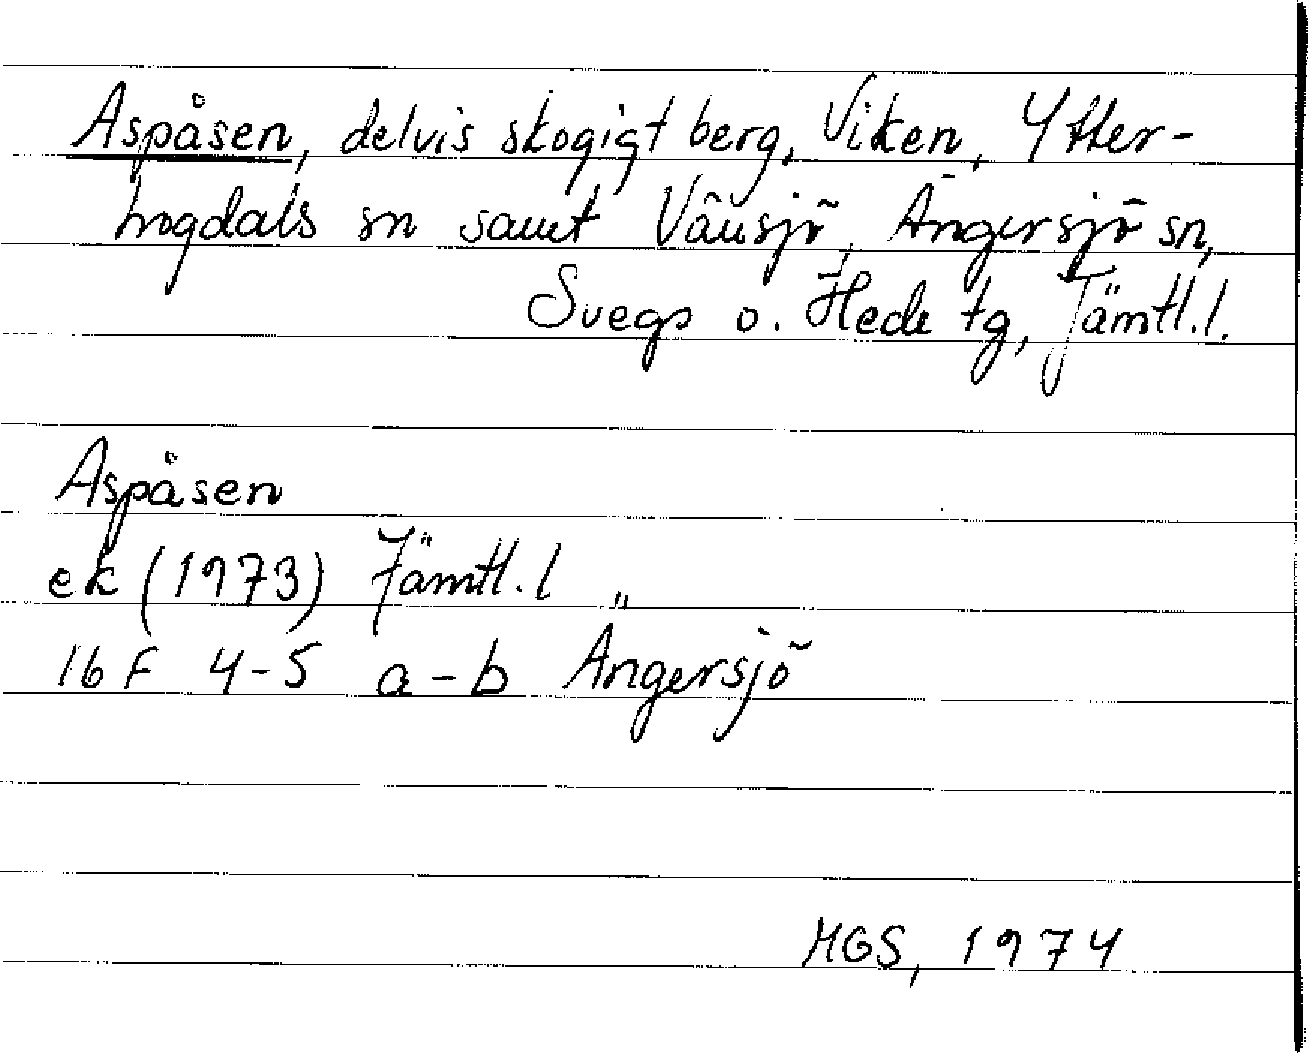 Aspåsen, delvis skogigt berg, Viken, Ytter-
hogdals sn samt Vänsjö, Ängersjö sn,
Svegs o. Hede tg, Jämtl.l.
Aspåsen
ek (1973) Jämtl.l
16 F 4-5 a-b Ängersjö
MGS, 1974